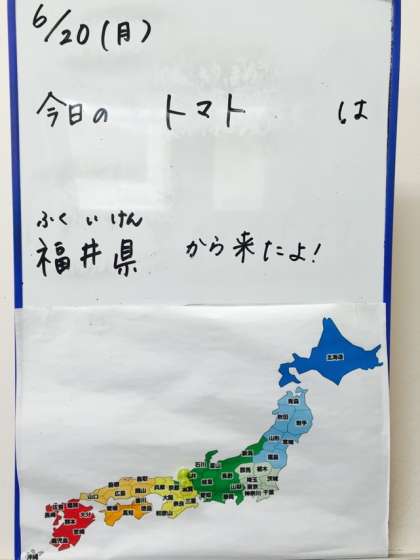 6/20(月)
今日の トマト は
ふくいけん
福井県 から来たよ!
北海道
青森
秋田 岩手
山形 宮城
福島
新潟
石川 富山
群馬 栃木
長野 茨城
埼玉
山梨 東京
神奈川 千葉
静岡
岐阜
愛知
滋賀
京都
三重
兵庫
和歌山
鳥取
島根
岡山
広島
山口
香川
愛媛
高知
福岡
佐賀
長崎
大分
熊本
鹿児島
沖縄